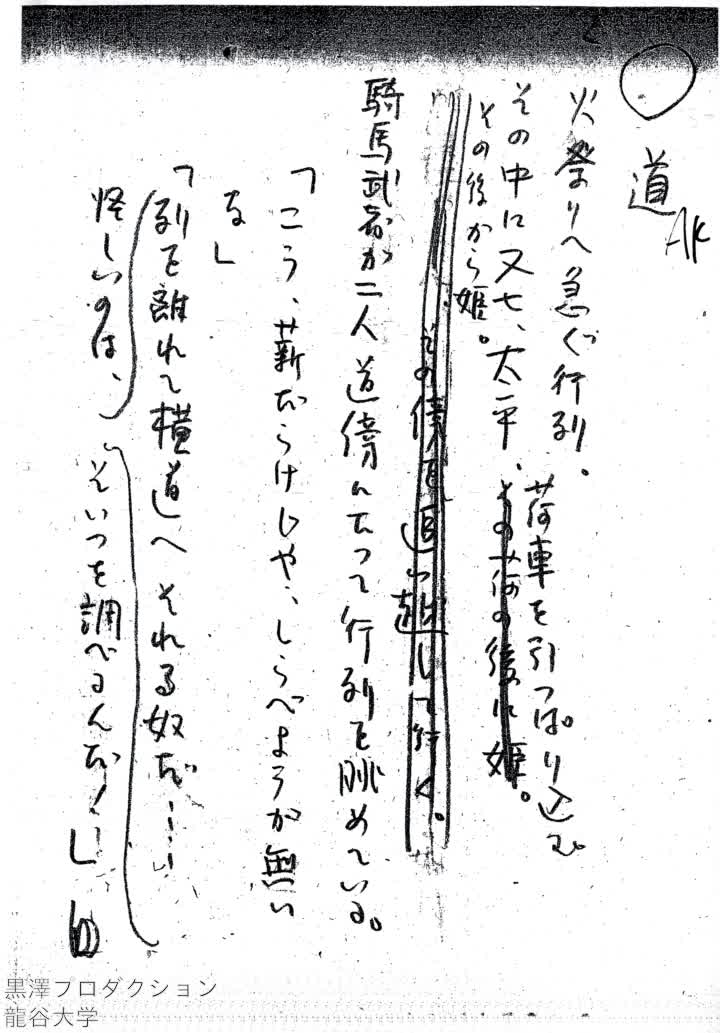 道
AK
火祭りへ急ぐ行列。
その中に又七、太平、荷車を引っぱり込む。
その荷の後に姫。
その後から姫。
その傍を追い越して行く。
騎馬武者が二人道傍に立って行列を眺めている。
「こう、薪だらけじゃ、しらべようが無い
な」
「列を離れて横道へそれる奴だ…
怪しいのは、そいつを調べるんだ!」
黒澤プロダクション
龍谷大学